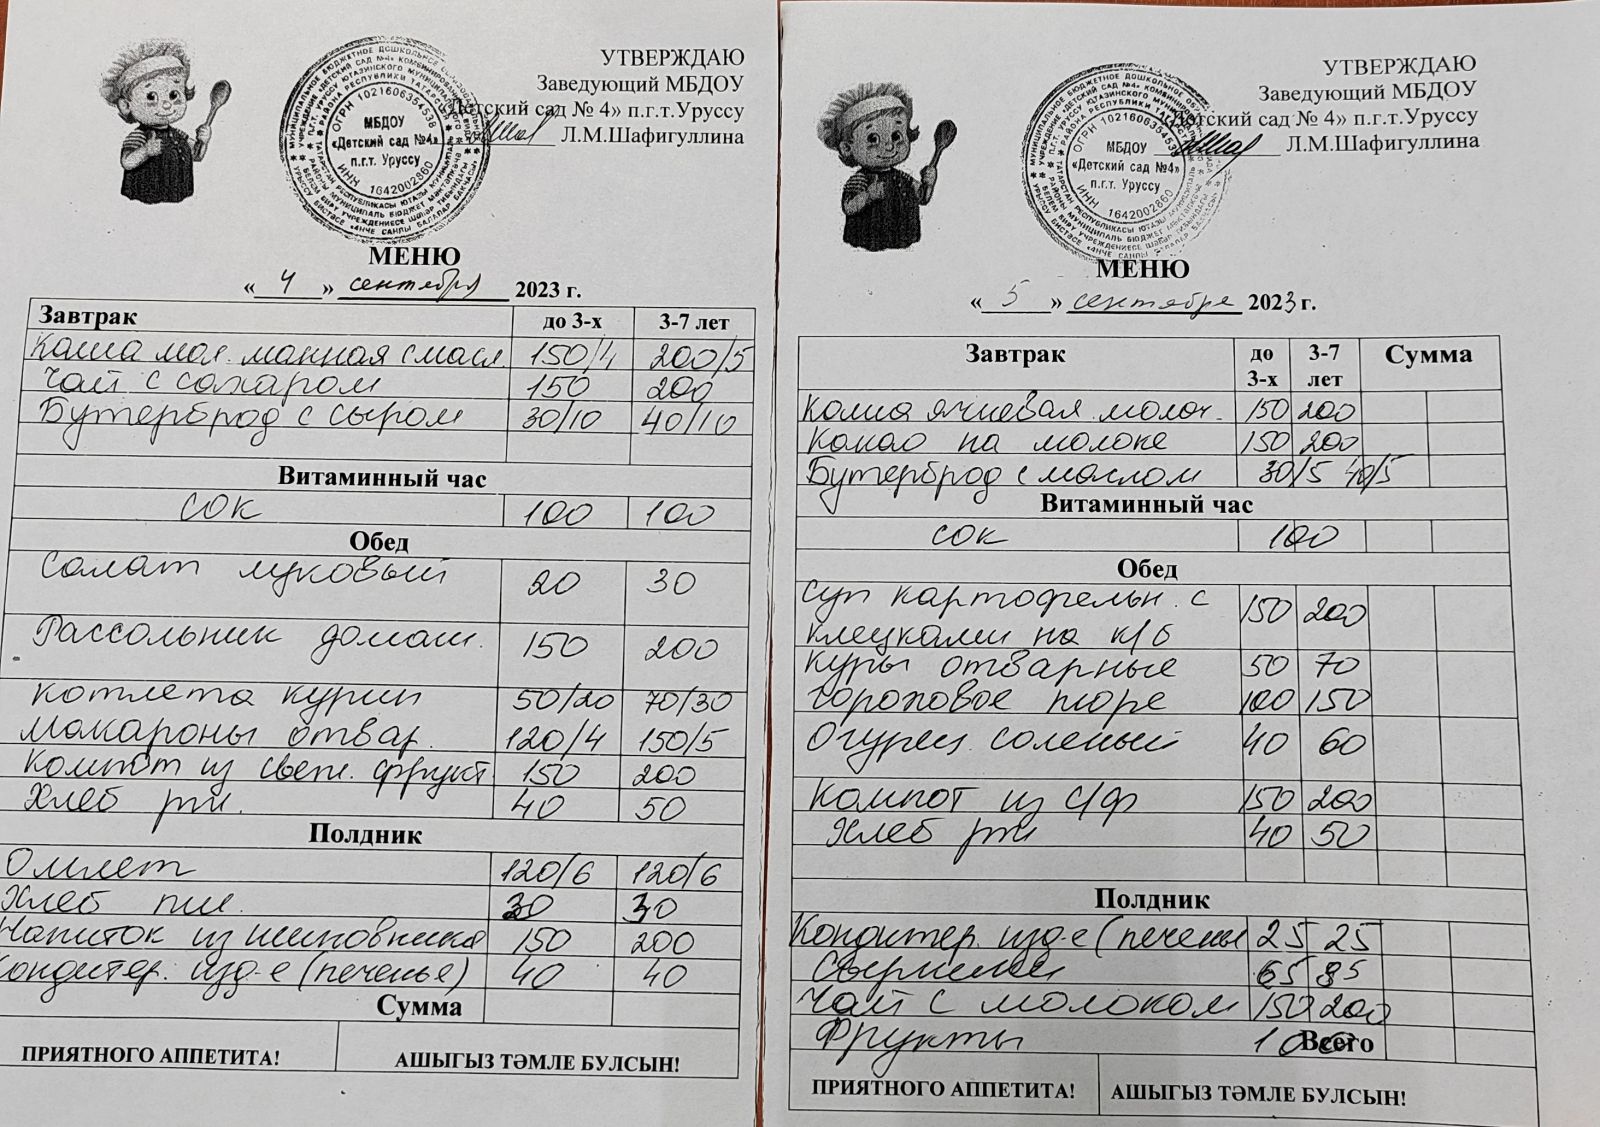 УТВЕРЖДАЮ
Заведующий МБДОУ
«Детский сад № 4» п.г.т.Уруссу
Л.М.Шафигуллина
ОГРН 1021606354539
МБДОУ
«Детский сад №4»
п.г.т. Уруссу
ИНН 1642002860
МЕНЮ
« 4 » сентября 2023 г.
Завтрак до 3-х 3-7 лет
Каша мол. манная с масл. 150/4 200/5
Чай с сахаром 150 200
Бутерброд с сыром 30/10 40/10
Витаминный час
сок 100 100
Обед
Салат луковый 20 30
Рассольник домаш. 150 200
котлета курин 50/20 70/30
макароны отвар. 120/4 150/5
Компот из свеж. фрукт. 150 200
Хлеб рж. 40 50
Полдник
Омлет 120/6 120/6
Хлеб пш. 30 30
Напиток из шиповника 150 200
Кондитер. изд-е (печенье) 40 40
Сумма
ПРИЯТНОГО АППЕТИТА! АШЫГЫЗ ТӘМЛЕ БУЛСЫН!
УТВЕРЖДАЮ
Заведующий МБДОУ
«Детский сад № 4» п.г.т.Уруссу
Л.М.Шафигуллина
ОГРН 1021606354539
МБДОУ
«Детский сад №4»
п.г.т. Уруссу
ИНН 1642002860
МЕНЮ
« 5 » сентября 2023 г.
Завтрак до 3-х 3-7 лет Сумма
Каша ячневая молоч. 150 200
Какао на молоке 150 200
Бутерброд с маслом 30/5 40/5
Витаминный час
сок 100
Обед
Суп картофельн. с 150 200
клецками на к/б
куры отварные 50 70
гороховое пюре 100 150
Огурец соленый 40 60
Компот из с/ф 150 200
Хлеб рж 40 50
Полдник
Кондитер. изд-е (печенье 25 25
65 85
Чай с молоком 150 200
Фрукты 100 Всего
ПРИЯТНОГО АППЕТИТА! АШЫГЫЗ ТӘМЛЕ БУЛСЫН!